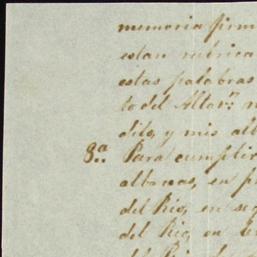 memoria firm
estan rubrica
estas palabras
to del Altar.
dito, y mis alb
8.ª Para cumplir
albaceas, en p
del Rio, en seg
del Rio, en te